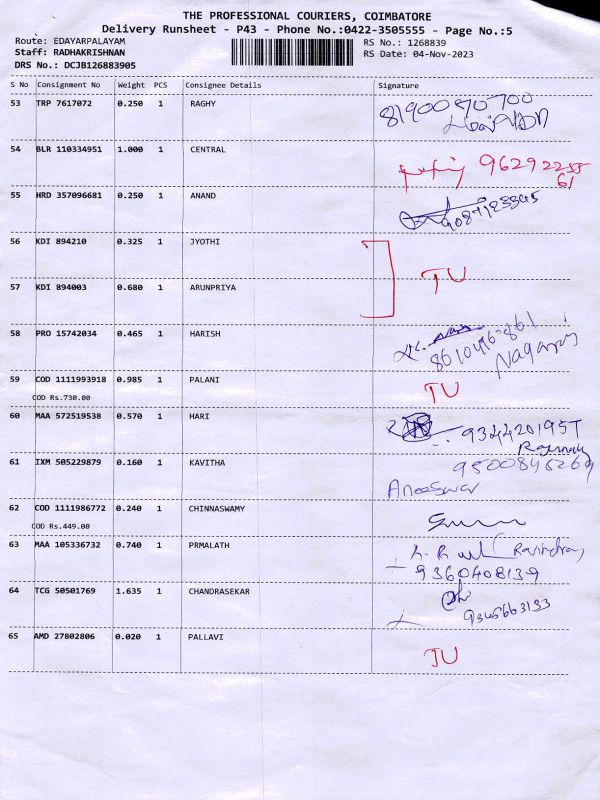 THE PROFESSIONAL COURIERS, COIMBATORE
Delivery Runsheet - P43 - Phone No.:0422-3505555 - Page No.:5
Route: EDAYARPALAYAM RS No.: 1268839
Staff: RADHAKRISHNAN RS Date: 04-Nov-2023
DRS No.: DCJB126883905
S No Consignment No Weight PCS Consignee Details Signature
53 TRP 7617072 0.250 1 RAGHY 8190070700
54 BLR 110334951 1.000 1 CENTRAL 96292255
61
55 HRD 357096681 0.250 1 ANAND 9087123345
56 KDI 894210 0.325 1 JYOTHI
TU
57 KDI 894003 0.680 1 ARUNPRIYA
58 PRO 15742034 0.465 1 HARISH
8610416861
59 COD 1111993918 0.985 1 PALANI TU
COD Rs.730.00
60 MAA 572519538 0.570 1 HARI 9344201957
61 IXM 505229879 0.160 1 KAVITHA 9500846269
62 COD 1111986772 0.240 1 CHINNASWAMY
COD Rs.449.00
63 MAA 105336732 0.740 1 PRMALATH
9360408139
64 TCG 50501769 1.635 1 CHANDRASEKAR
9345663133
65 AMD 27802806 0.020 1 PALLAVI TU